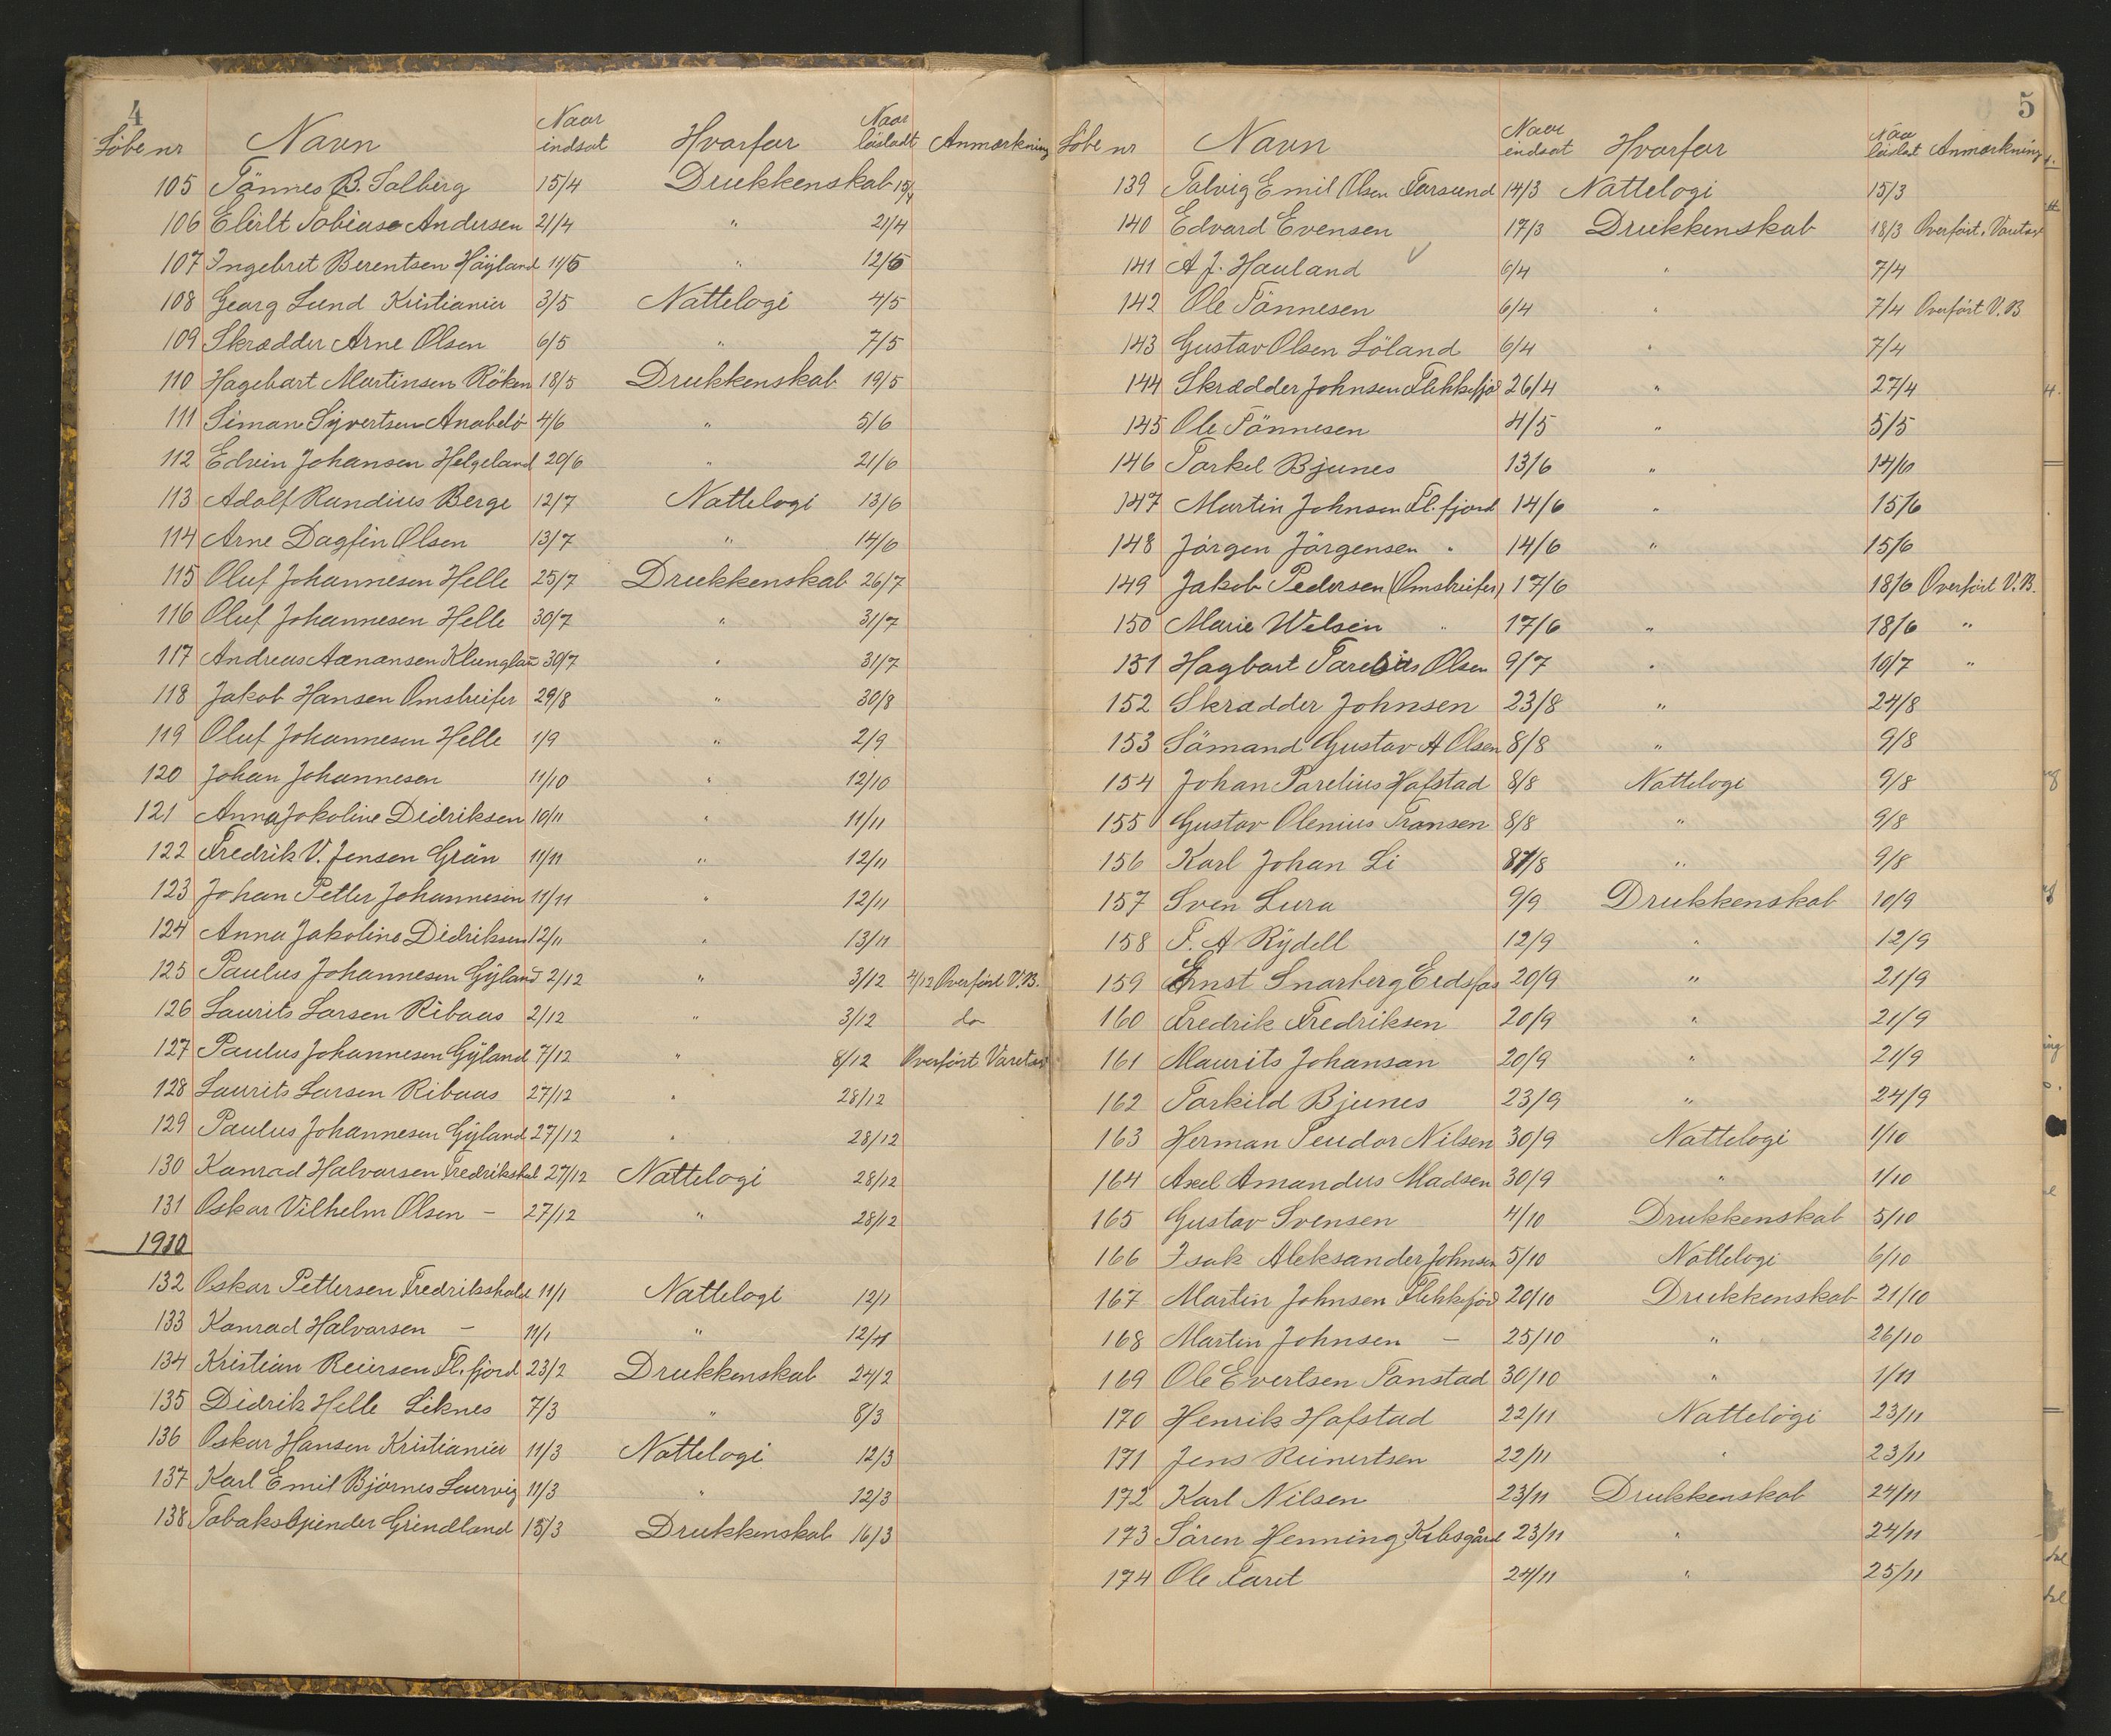 4
Löbe nr Navn Naar indsat Hvorfor Naar lösladt Anmærkning
105 Tönnes B. Salberg 15/4 Drukkenskab 15/4
106 Elert Tobias Andersen 21/4 " 21/4
107 Ingebret Berentsen Höyland 11/5 " 12/5
108 Georg Lund Kristiania 3/5 Nattelogi 4/5
109 Skrædder Arne Olsen 6/5 " 7/5
110 Hagebart Martinsen Röken 18/5 Drukkenskab 19/5
111 Simon Syvertsen Anabelö 4/6 " 5/6
112 Edvin Johansen Helgeland 20/6 " 21/6
113 Adolf Randius Berge 12/7 Nattelogi 13/6
114 Arne Dagfin Olsen 13/7 " 14/6
115 Oluf Johannesen Helle 25/7 Drukkenskab 26/7
116 Oluf Johannesen Helle 30/7 " 31/7
117 Andreas Aanansen 30/7 " 31/7
118 Jakob Hansen Omstreifer 29/8 " 30/8
119 Oluf Johannesen Helle 1/9 " 2/9
120 Johan Johannesen 11/10 " 12/10
121 Anna Jokoline Didriksen 10/11 " 11/11
122 Fredrik V. Jensen Grän 11/11 " 12/11
123 Johan Petter Johannesen 11/11 " 12/11
124 Anna Jakoline Didriksen 12/11 " 13/11
125 Paulus Johannesen Gyland 2/12 " 3/12 4/12 Overfört V.B.
126 Laurits Larsen Ribaas 2/12 " 3/12 do
127 Paulus Johannesen Gyland 7/12 " 8/12 Overfört Varetæ
128 Laurits Larsen Ribaas 27/12 " 28/12
129 Paulus Johannesen Gyland 27/12 " 28/12
130 Konrad Halvorsen Fredrikshal 27/12 Nattelogi 28/12
131 Oskar Vilhelm Olsen – 27/12 " 28/12
1910
132 Oskar Pettersen Fredrikshald 11/1 Nattelogi 12/1
133 Konrad Halvorsen – 11/1 " 12/1
134 Kristian Reiersen Fl.fjord 23/2 Drukkenskab 24/2
135 Didrik Helle Liknes 7/3 " 8/3
136 Oskar Hansen Kristiania 11/3 Nattelogi 12/3
137 Karl Emil Bjørnes Laurvig 11/3 " 12/3
138 Tobakspinder Grindland 15/3 Drukkenskab 16/3
5
Löbe nr Navn Naar indsat Hvorfor Naar löslat Anmærkning
139 Salvig Emil Olsen Farsund 14/3 Nattelogi 15/3
140 Edvard Evensen 17/3 Drukkenskab 18/3 Overfört. Varetæ
141 A J. Hauland 6/4 " 7/4
142 Ole Tönnesen 6/4 " 7/4 Overfört V.B
143 Gustav Olsen Löland 6/4 " 7/4
144 Skrædder Johnsen Flekkefjd 26/4 " 27/4
145 Ole Tönnesen 4/5 " 5/5
146 Torkel Bjunes 13/6 " 14/6
147 Martin Johnsen Fl.fjord 14/6 " 15/6
148 Jörgen Jörgensen " 14/6 " 15/6
149 Jakob Pedersen (Omstreifer) 17/6 18/6 Overfört V.B.
150 Marie Welsein " 17/6 " 18/6 "
151 Hagbart Olsen 9/7 " 10/7 "
152 Skrædder Johnsen 23/8 " 24/8
153 Sömand Gustav A Olsen 8/8 " 9/8
154 Johan Parelius Hafstad 8/8 Nattelogi 9/8
155 Gustav Olenius Fransen 8/8 " 9/8
156 Karl Johan Li 8/8 " 9/8
157 Sven Lura 9/9 Drukkenskab 10/9
158 F. A Rydell 12/9 " 12/9
159 Ernst Snarberg Eidsfos 20/9 " 21/9
160 Fredrik Fredriksen 20/9 " 21/9
161 Maurits Johansan 20/9 " 21/9
162 Torkild Bjunes 23/9 " 24/9
163 Herman Teudor Nilsen 30/9 Nattelogi 1/10
164 Axel Amandus Madsen 30/9 " 1/10
165 Gustav Svensen 4/10 Drukkenskab 5/10
166 Isak Aleksander Johnsen 5/10 Nattelogi 6/10
167 Martin Johnsen Flekkefjord 20/10 Drukkenskab 21/10
168 Martin Johnsen – 25/10 " 26/10
169 Ole Evertsen Tanstad 30/10 " 1/11
170 Henrik Hafstad 22/11 Nattelogi 23/11
171 Jens Reinertsen 22/11 " 23/11
172 Karl Nilsen 23/11 Drukkenskab 24/11
173 Sören Henning Kibsgård 23/11 " 24/11
174 Ole Faret 24/11 " 25/11